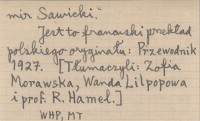 mir Sawicki."
Jest to francuski przekład
polskiego oryginału: Przewodnik
1927. [Tłumaczyli: Zofia
Morawska, Wanda Lilpopowa
i prof. R. Hamel.]
WHP, MT